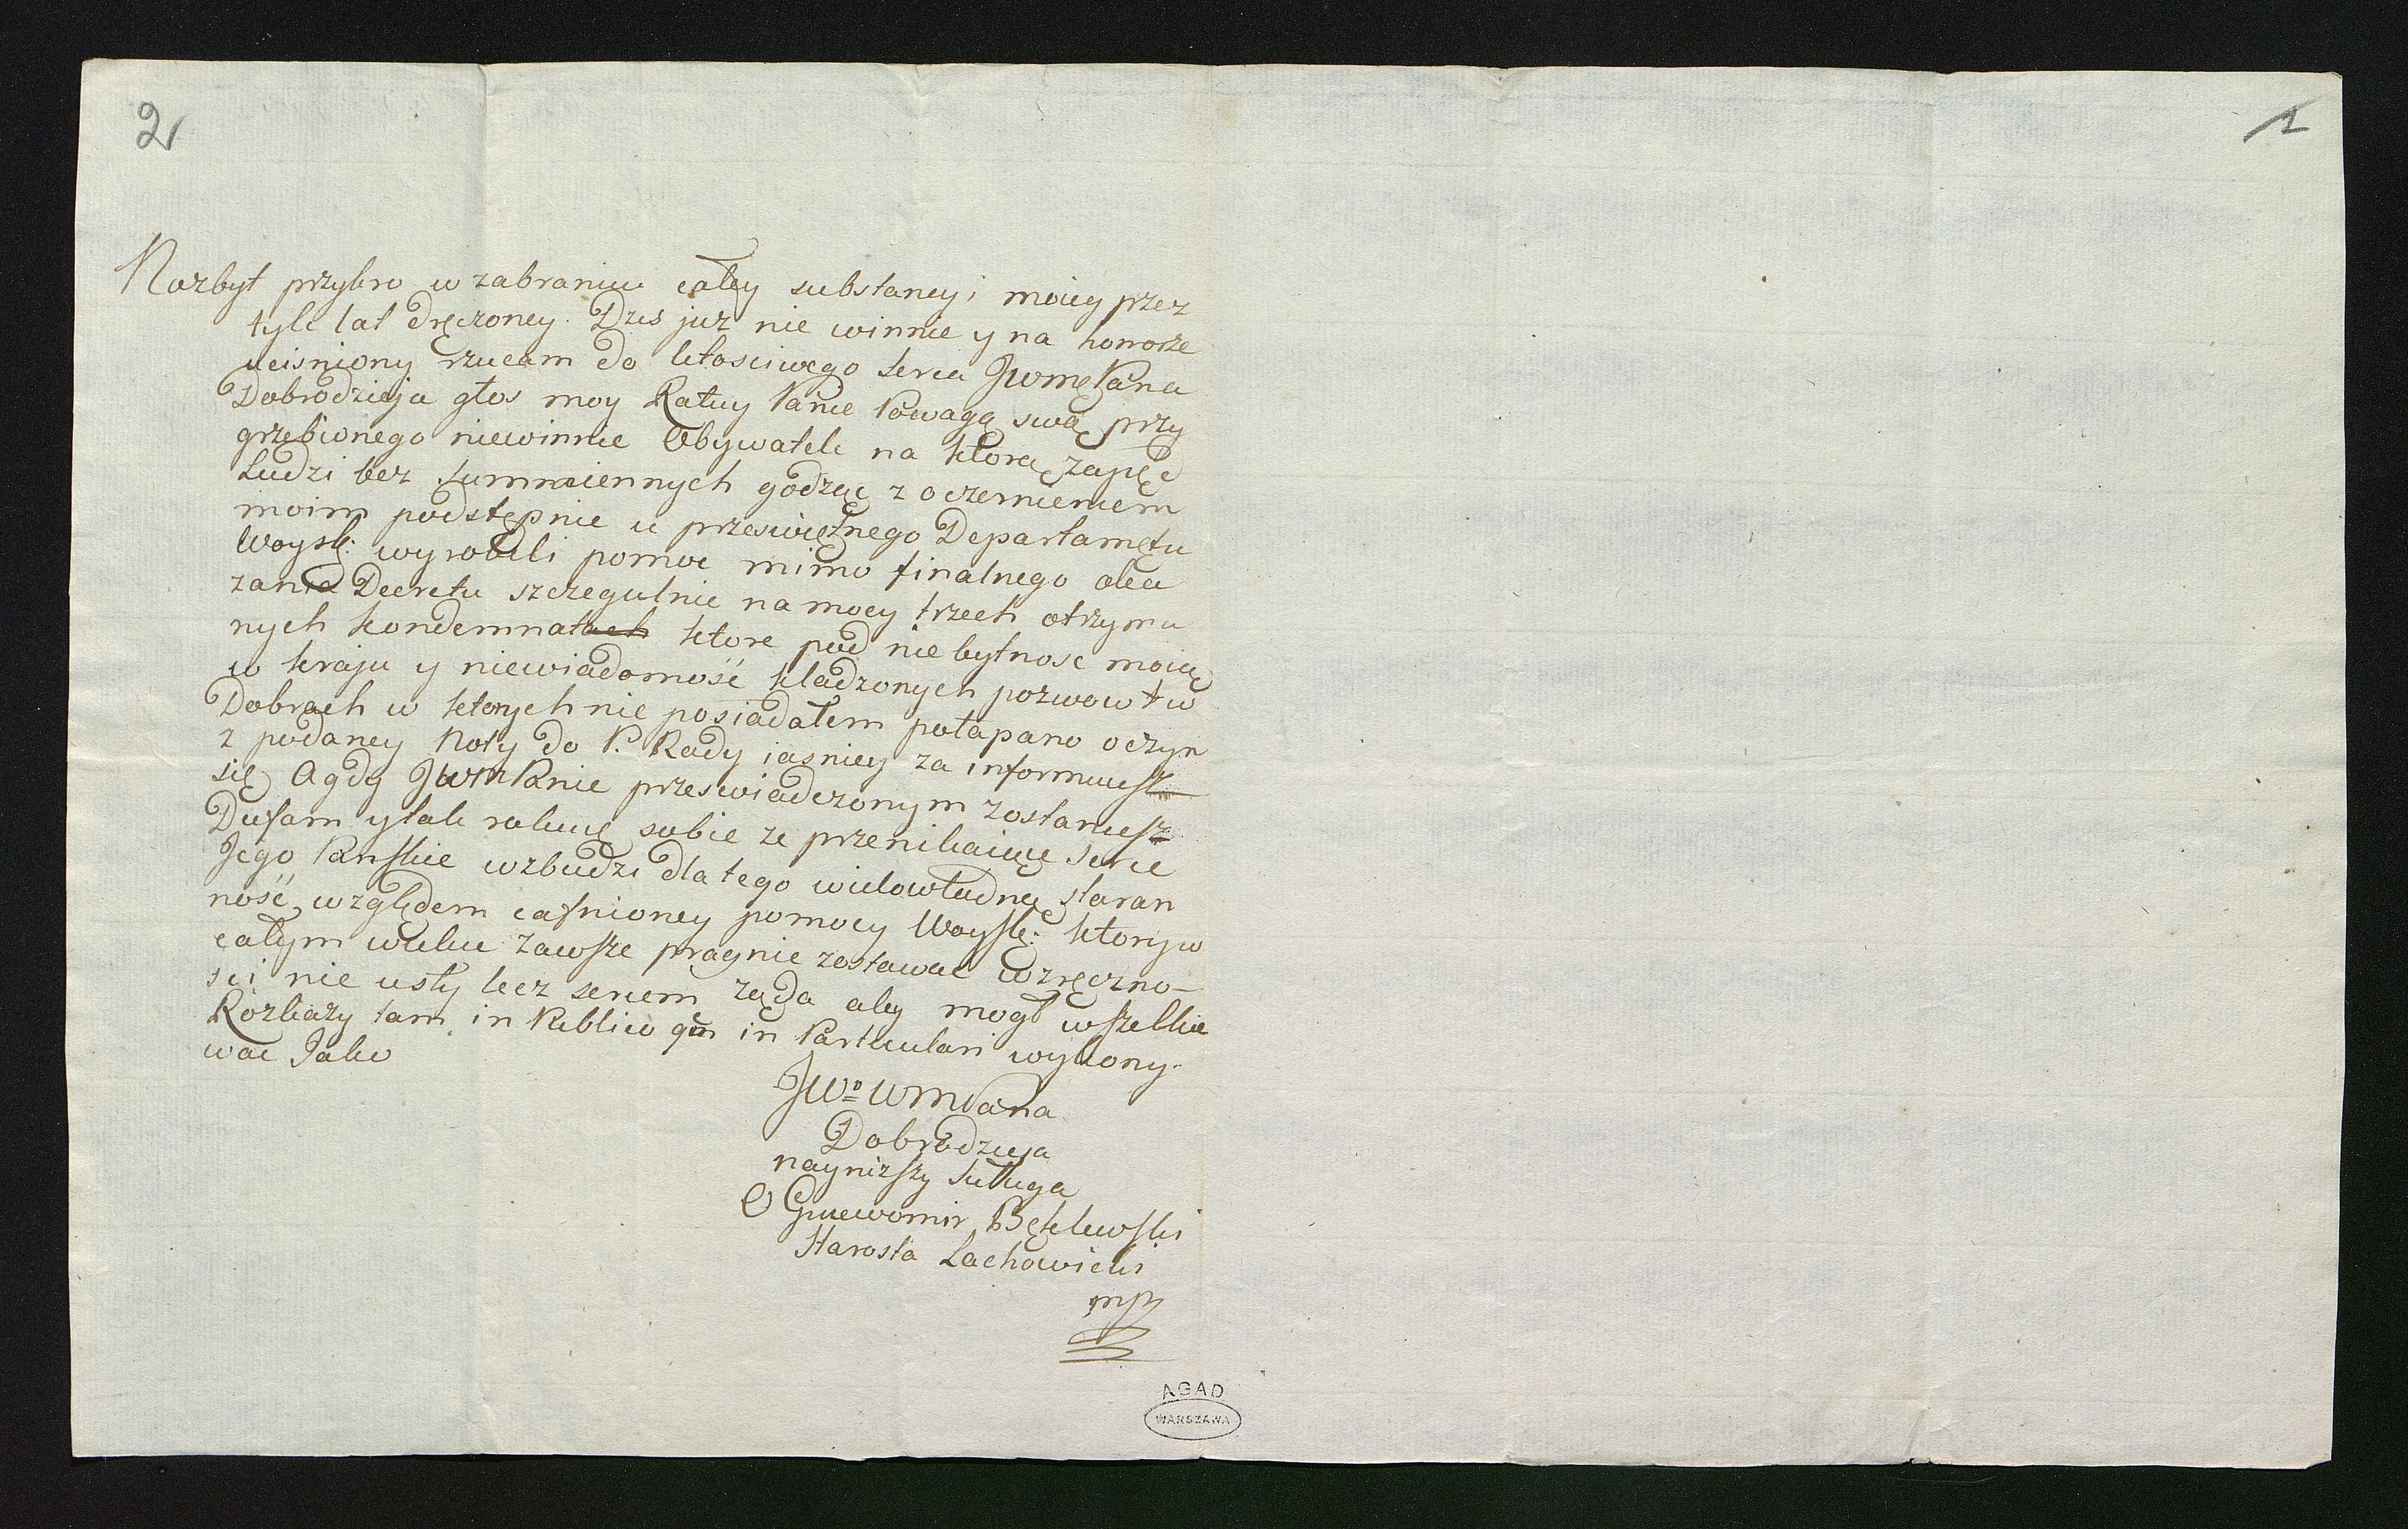 2
1
Nazbyt przykro w zabraniu całey substancyi moiey przez
tyle lat dręczoney. Dziś juz nie winnie y na honorze
uciśniony rzucam do litosciwego serca Jwmę Pana
Dobrodzieja głos moy Ratuy Panie Powagą swą przy
grzebionego niewinnie Obywatela na ktorą
Ludzi bez sumniennych godząc z oczernieniem
moim podstępnie u prześwietnego Departamętu
Woysk: wyrobili pomoc mimo finalnego oka
zania Decretu szczegulnie na mocy trzech otrzyma
nych kondemnatach ktore pod nie bytnosc moią
w kraju y niewiadomość kladzonych pozwow w
Dobrach w ktorych nie posiadałem połapano oczym
z podaney Noty do P. Rady iasniey za informuiesz
się Agdy JWM Panie przeswiadczonym zostaniesz
Dufam y tak rokuię sobie ze przenikaiące Serce
Jego Panskie wzbudzi dla tego wielowładną staran
ność względem cafnioney pomocy Woysk: ktory w
całym wieku zawsze pragnie zostawac wzręczno-
sci nie usty lecz sercem ząda aby mogł wszelkie
Rozkazy tam in Publico qm in Particulari wykony-
wac Jako
JWo WMPana
Dobrodzieja
nayniższy Sługa
O Gniewomir Bękłewski
Starosta Lachowicki
mp
AGAD
WARSZAWA